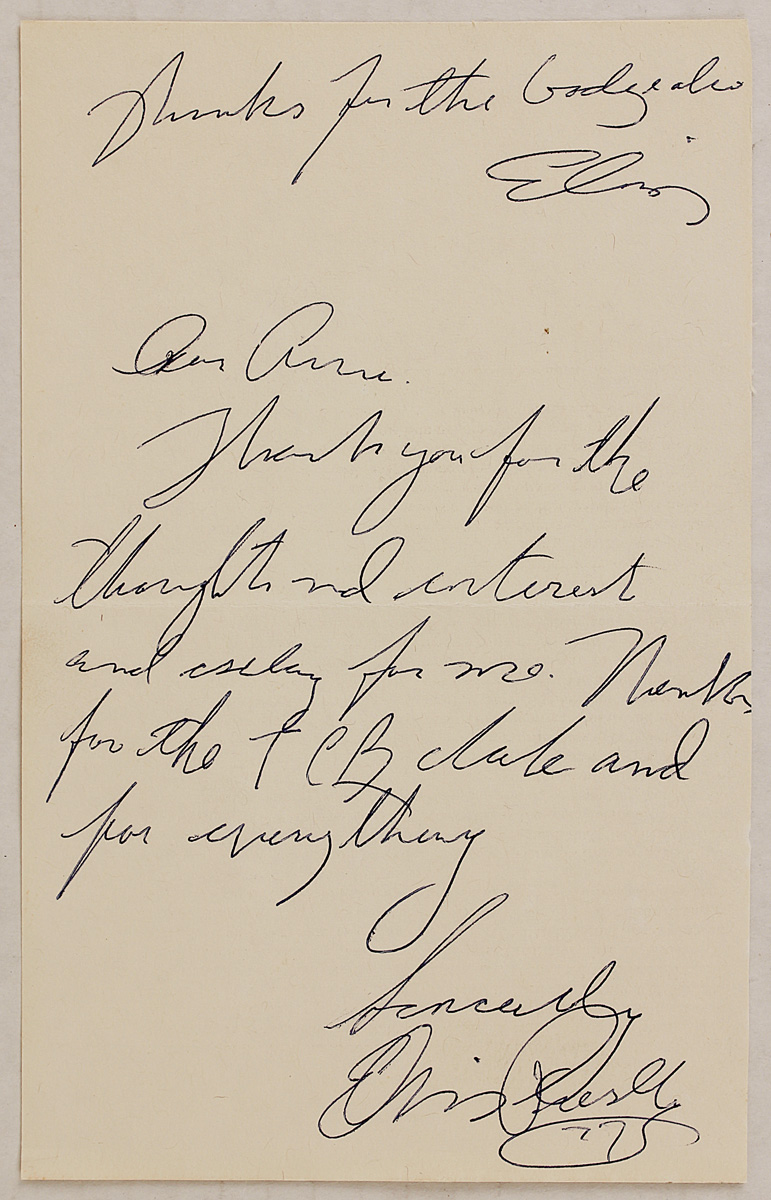 Thanks for the badge also
Elvis
Dear Anne.
Thank you for the
thoughts and interest
and for me. Thanks
for the TCB and
for everything
Sincerely
Elvis Presley